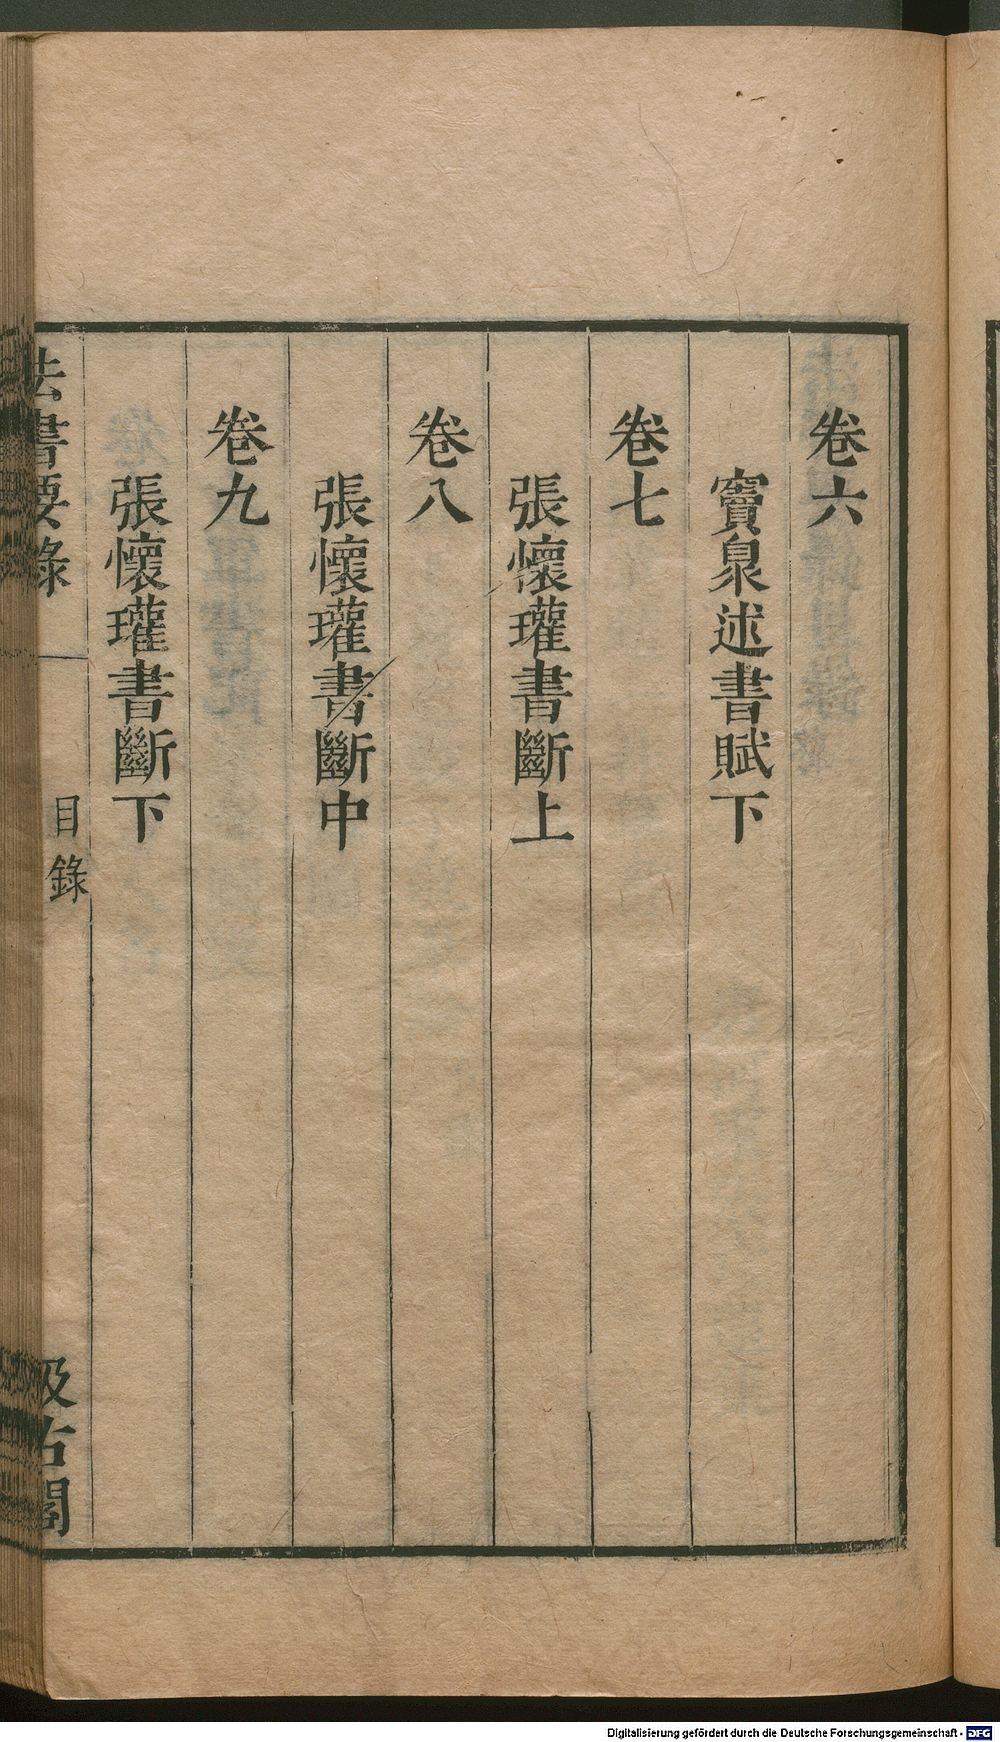 卷六
竇臮述書賦下
卷七
張懷瓘書斷上
卷八
張懷瓘書斷中
卷九
張懷瓘書斷下
法書要錄
目錄
汲古閣
Digitalisierung gefördert durch die Deutsche Forschungsgemeinschaft - DFG